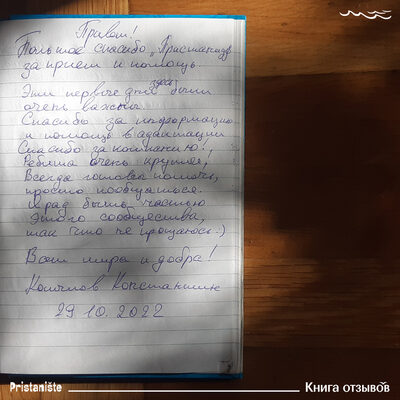 Привет!
Большое спасибо "Пристанищу"
за прием и помощь.
Эти первые дни здесь были
очень важны.
Спасибо за информацию
и помощь в адаптации
Спасибо за компанию!,
Ребята очень крутые,
Всегда готовы помочь,
просто пообщаться.
Я рад быть частью
Этого сообщества,
так что не прощаюсь :)
Всем мира и добра!
Константин
29.10.2022
Pristanište
Книга отзывов